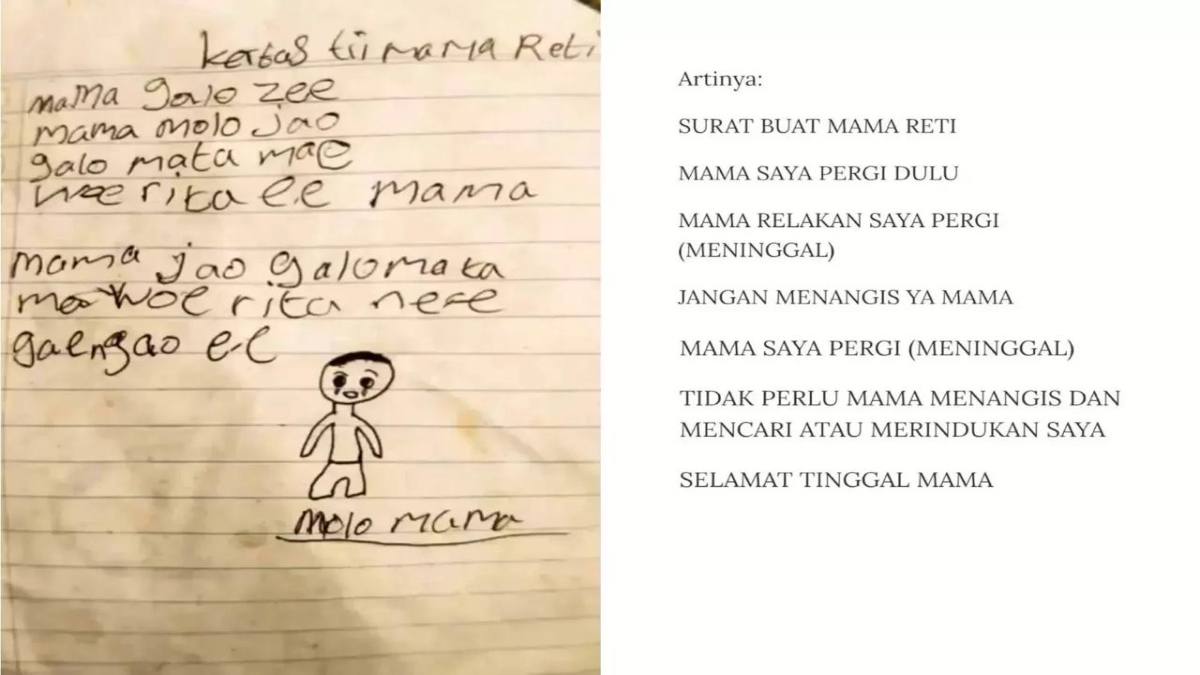 kertas tii mama Reti
mama galo zee
mama molo jao
galo mata mae
woe rita e.e mama
mama jao galo mata
mae woe rita ne-e
gaengao e-e
molo mama
Artinya:
SURAT BUAT MAMA RETI
MAMA SAYA PERGI DULU
MAMA RELAKAN SAYA PERGI
(MENINGGAL)
JANGAN MENANGIS YA MAMA
MAMA SAYA PERGI (MENINGGAL)
TIDAK PERLU MAMA MENANGIS DAN
MENCARI ATAU MERINDUKAN SAYA
SELAMAT TINGGAL MAMA